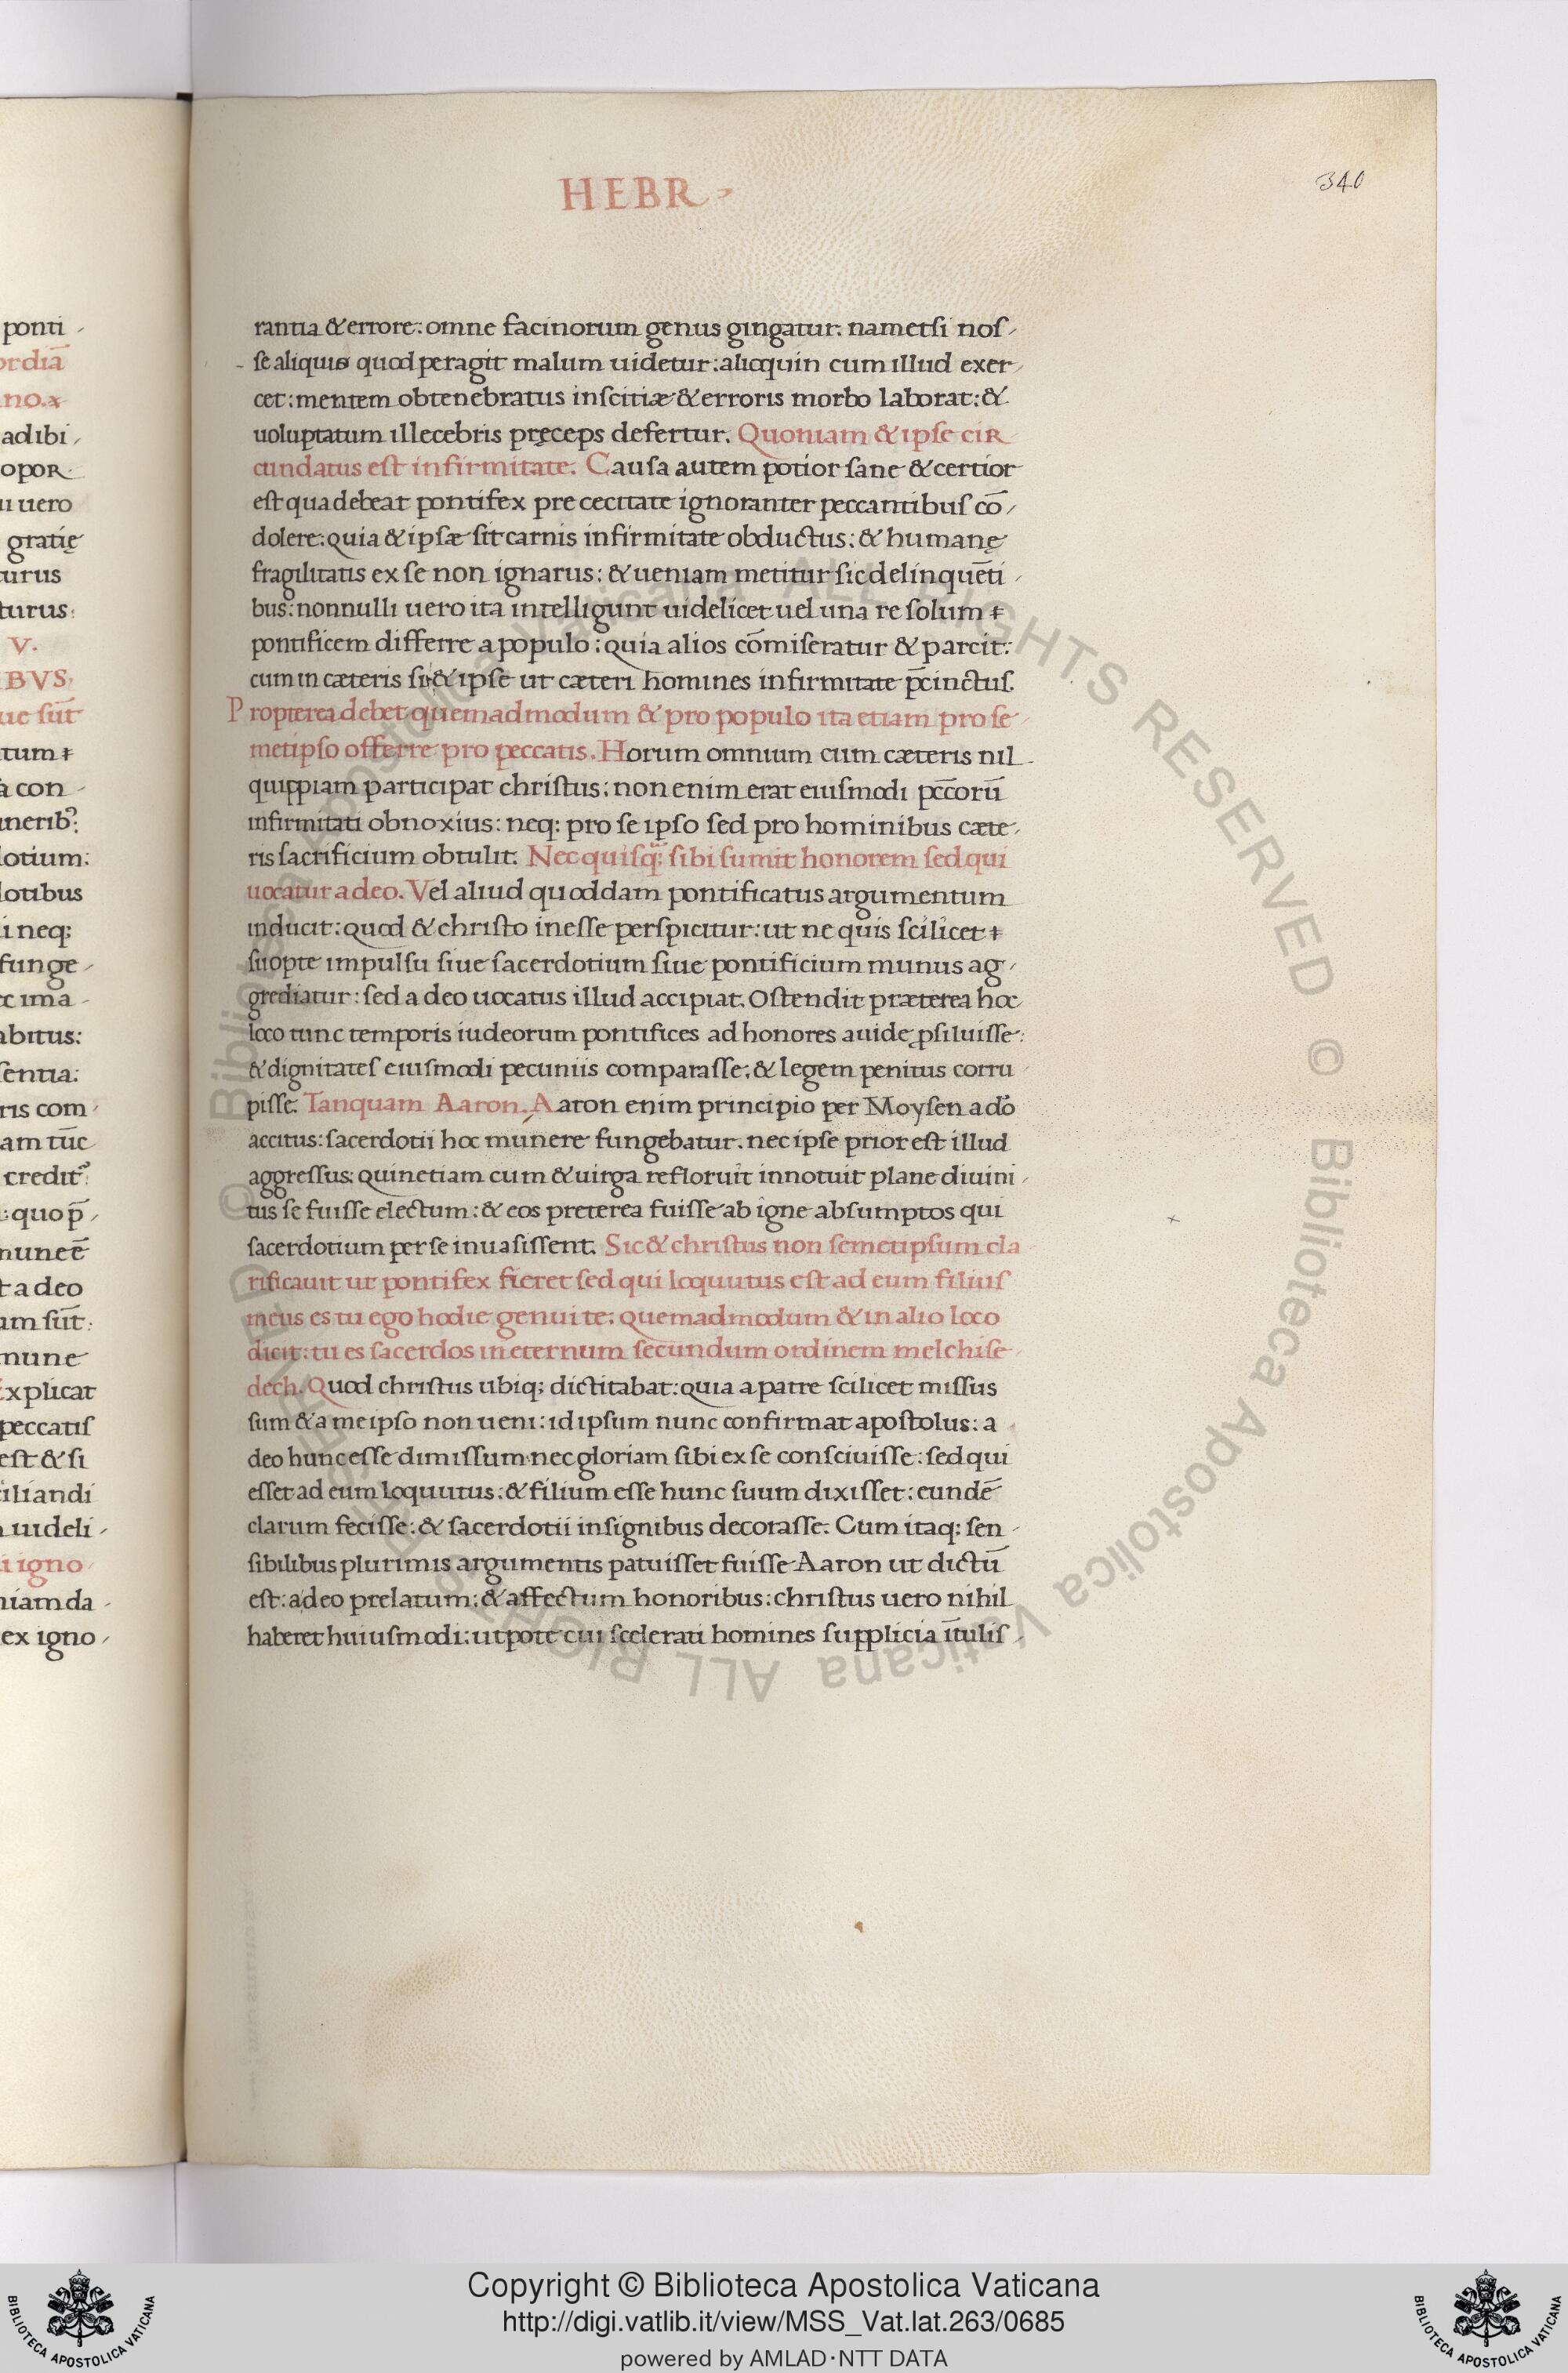 HEBR
340
rantia & errore: omne facinorum genus gingatur. nametsi noſ-
ſe aliquis quod peragit malum uidetur: alioquin cum illud exer-
cet: mentem obtenebratus inſcitiæ & erroris morbo laborat: &
uoluptatum illecebris pręceps defertur. Quoniam & ipſe cir
cundatus eſt infirmitate. Cauſa autem potior ſane & certior
eſt qua debeat pontifex pre cecitate ignoranter peccantibuſ cō-
dolere: quia & ipſæ ſit carnis infirmitate obductus: & humanę
fragilitatis ex ſe non ignarus: & ueniam metitur ſic delinquēti-
bus: nonnulli uero ita intelligunt uidelicet uel una re ſolum
pontificem differre a populo: quia alios cōmiſeratur & parcit:
cum in cæteris ſit & ipſe ut cæteri homines infirmitate p̄cinctuſ.
Propterea debet quemadmodum & pro populo ita etiam pro ſe-
metipſo offerre pro peccatis. Horum omnium cum cæteris nil-
quippiam participat chriſtus: non enim erat eiuſmodi pcc̄orū
infirmitati obnoxius: neq; pro ſe ipſo ſed pro hominibus cæte-
ris ſacrificium obtulit. Nec quiſq̈; ſibi ſumit honorem ſed qui
uocatur a deo. Vel aliud quoddam pontificatus argumentum
inducit: quod & chriſto ineſſe perſpicitur: ut ne quis ſcilicet
ſuopte impulſu ſiue ſacerdotium ſiue pontificium munus ag-
grediatur: ſed a deo uocatus illud accipiat. Oſtendit præterea hoc
loco tunc temporis iudeorum pontifices ad honores auide ꝓſiluiſſe:
& dignitateſ eiuſmodi pecuniis comparaſſe: & legem penitus corru-
piſſe. Tanquam Aaron. Aaron enim principio per Moyſen a dō
accitus: ſacerdotii hoc munere fungebatur. nec ipſe prior eſt illud
aggreſſus: quinetiam cum & uirga refloruit innotuit plane diuini-
tus ſe fuiſſe electum: & eos preterea fuiſſe ab igne abſumptos qui
ſacerdotium per ſe inuaſiſſent. Sic & chriſtus non ſemetipſum cla-
rificauit ut pontifex fieret ſed qui loquutus eſt ad eum filiuſ
meus es tu ego hodie genui te: quemadmodum & in alio loco
dicit: tu es ſacerdos in eternum ſecundum ordinem melchiſe-
dech. Quod chriſtus ubiq; dictitabat: quia a patre ſcilicet miſſus
ſum & a me ipſo non ueni: id ipſum nunc confirmat apoſtolus: a
deo hunc eſſe dimiſſum nec gloriam ſibi ex ſe conſciuiſſe: ſed qui
eſſet ad eum loquutus: & filium eſſe hunc ſuum dixiſſet: eundē
clarum feciſſe: & ſacerdotii inſignibus decoraſſe. Cum itaq; ſen-
ſibilibus plurimis argumentis patuiſſet fuiſſe Aaron ut dictū
eſt: a deo prelatum: & affectum honoribus: chriſtus uero nihil
haberet huiuſmodi: utpote cui ſcelerati homines ſupplicia ītuliſ-
ponti-
adibi-
opor
uero
gratię
turus
turus:
V.
BVS.
con-
lotium:
lotibus
i neq;
funge-
ima-
abitus:
ſentia:
ris com-
am tūc
credit
quo p̄-
t a deo
um ſūt:
mune
xplicat
peccatiſ
eſt & ſi
ciliandi
uideli-
igno-
niam da-
ex igno-
© Biblioteca Apostolica Vaticana ALL RIGHTS RESERVED
Copyright © Biblioteca Apostolica Vaticana
http://digi.vatlib.it/view/MSS_Vat.lat.263/0685
powered by AMLAD·NTT DATA
BIBLIOTECA APOSTOLICA VATICANA
BIBLIOTECA APOSTOLICA VATICANA